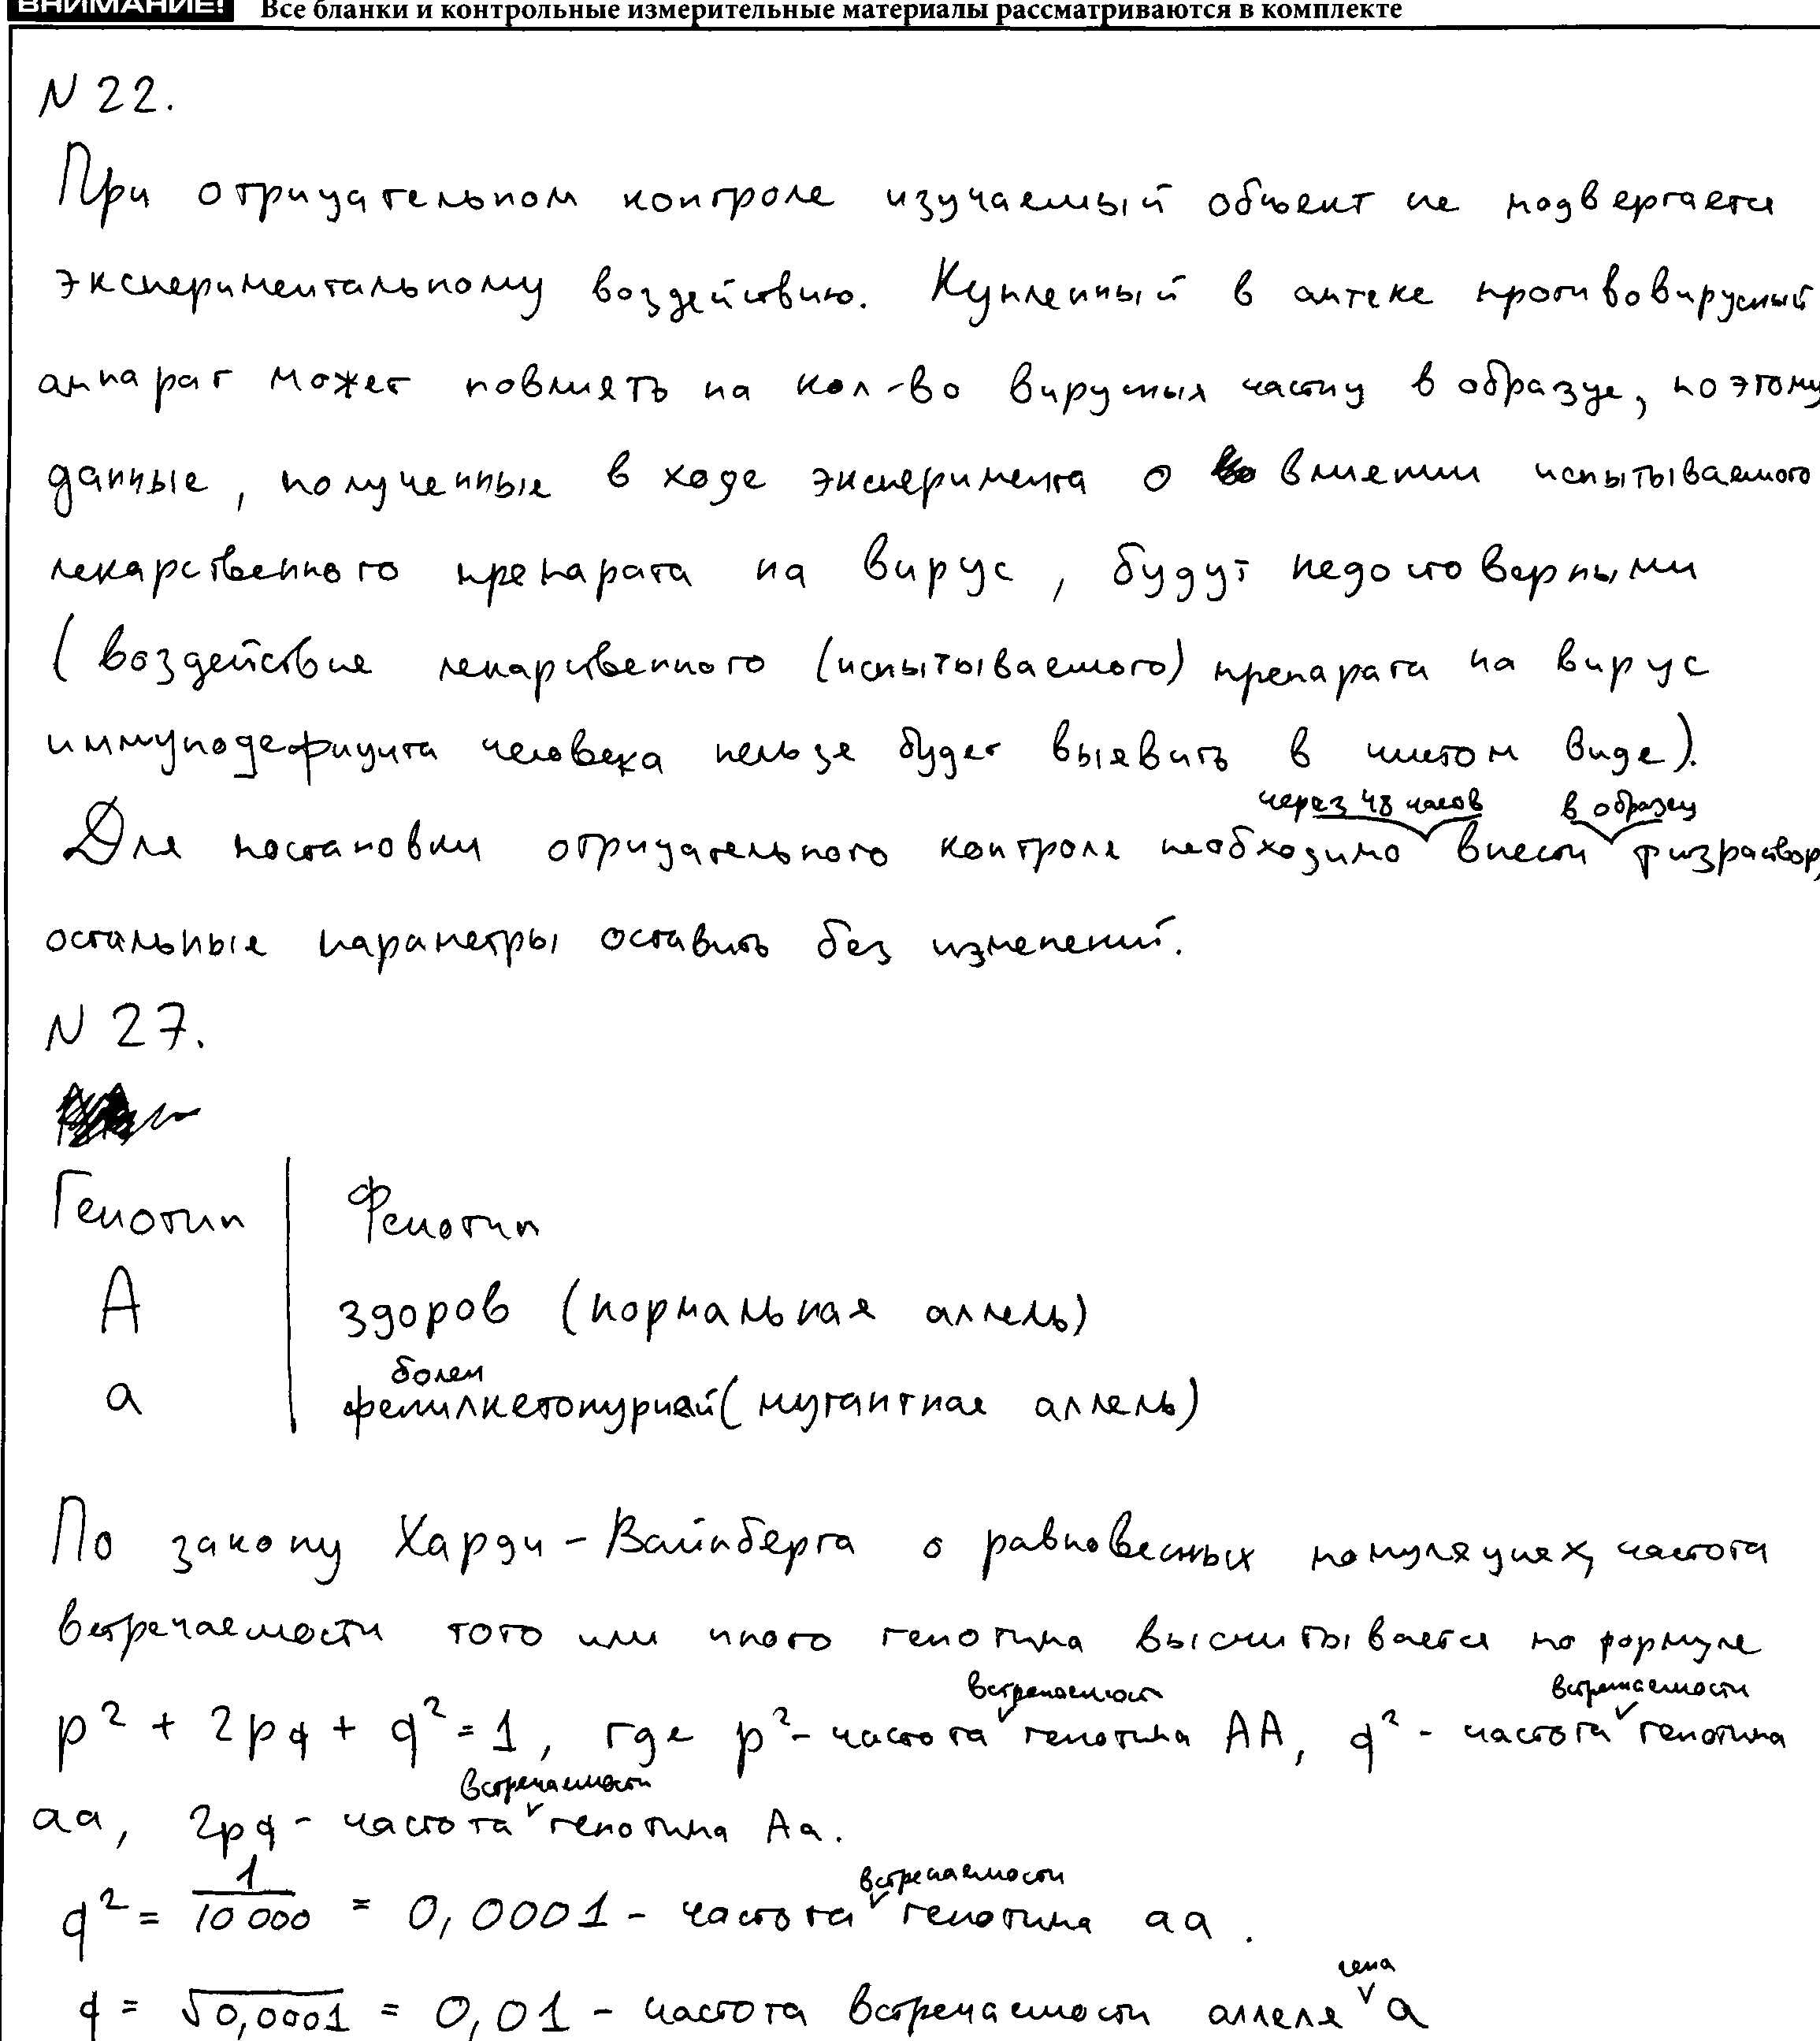 ВНИМАНИЕ! Все бланки и контрольные измерительные материалы рассматриваются в комплекте
N 22.
При отрицательном контроле изучаемый объект не подвергается
экспериментальному воздействию. Купленный в аптеке противовирусный
аппарат может повлиять на кол-во вирусных частиц в образце, поэтому
данные, полученные в ходе эксперимента о влиянии испытываемого
лекарственного препарата на вирус, будут недостоверными
(воздействие лекарственного (испытываемого) препарата на вирус
иммунодефицита человека нельзя будет выявить в чистом виде).
через 48 часов в образец
Для постановки отрицательного контроля необходимо внести физраствор,
остальные параметры оставить без изменений.
N 27.
Генотип | Фенотип
А | здоров (нормальная аллель)
болен
а | фенилкетонурией (мутантная аллель)
По закону Харди-Вайнберга о равновесных популяциях, частота
встречаемости того или иного генотипа высчитывается по формуле
встречаемости встречаемости
p² + 2pq + q² = 1, где p² - частота генотипа АА, q² - частота генотипа
встречаемости
аа, 2pq - частота генотипа Аа.
встречаемости
q² = 1/10 000 = 0,0001 - частота генотипа аа.
гена
q = √0,0001 = 0,01 - частота встречаемости аллеля а